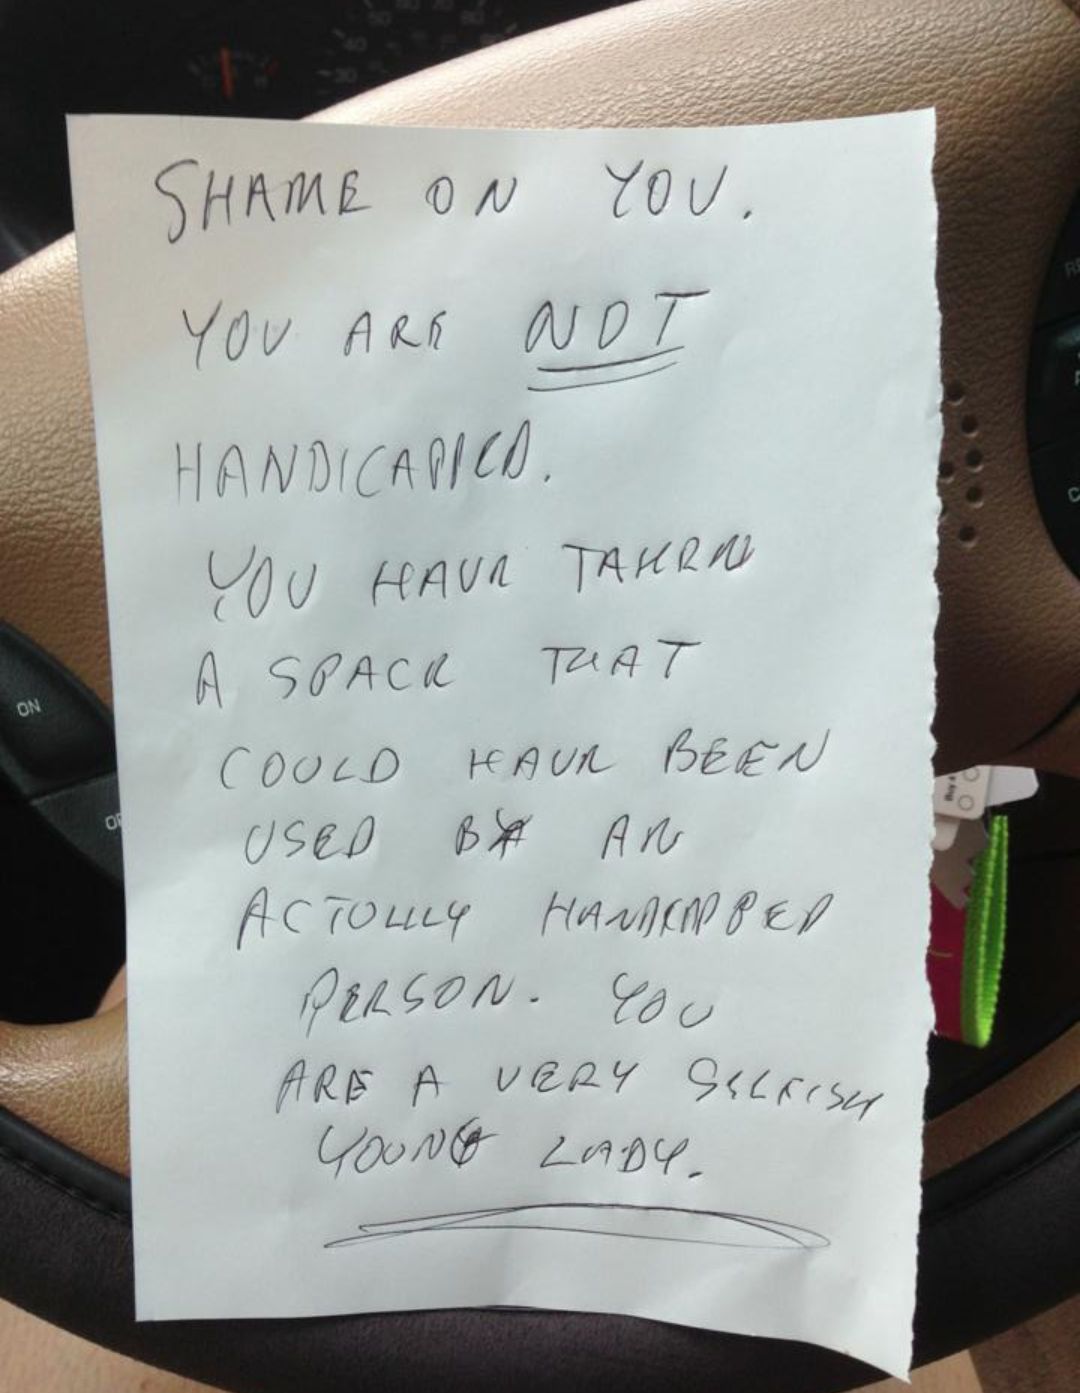 SHAME ON YOU.
YOU ARE NOT
HANDICAPPED.
YOU HAVE TAKEN
A SPACE THAT
COULD HAVE BEEN
USED BY AN
ACTULLY HANDICAPPED
PERSON. YOU
ARE A VERY SELFISH
YOUNG LADY.
ON